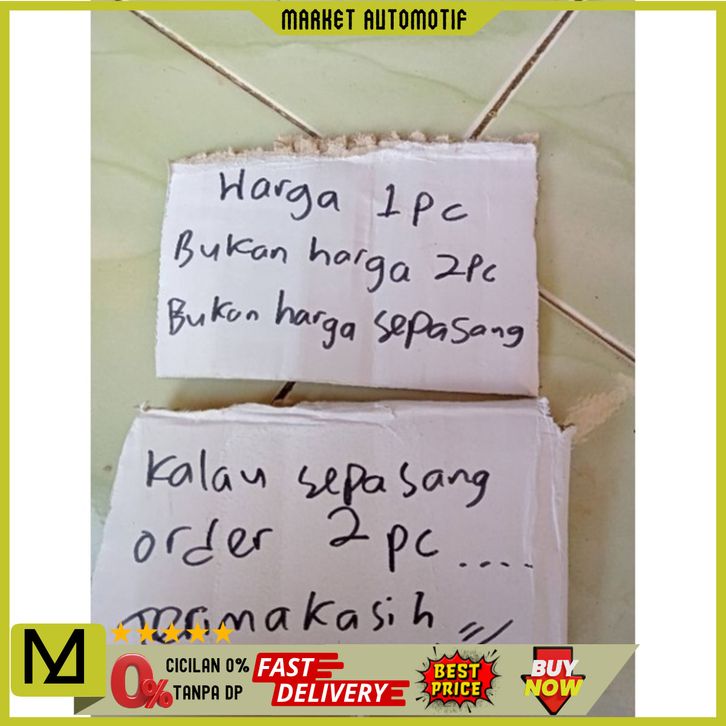 MARKET AUTOMOTIF
Harga 1 Pc
Bukan harga 2Pc
Bukan harga sepasang
Kalau sepasang
order 2 pc ....
Terimakasih //
0%
CICILAN 0%
TANPA DP
FAST
DELIVERY
BEST
PRICE
BUY
NOW